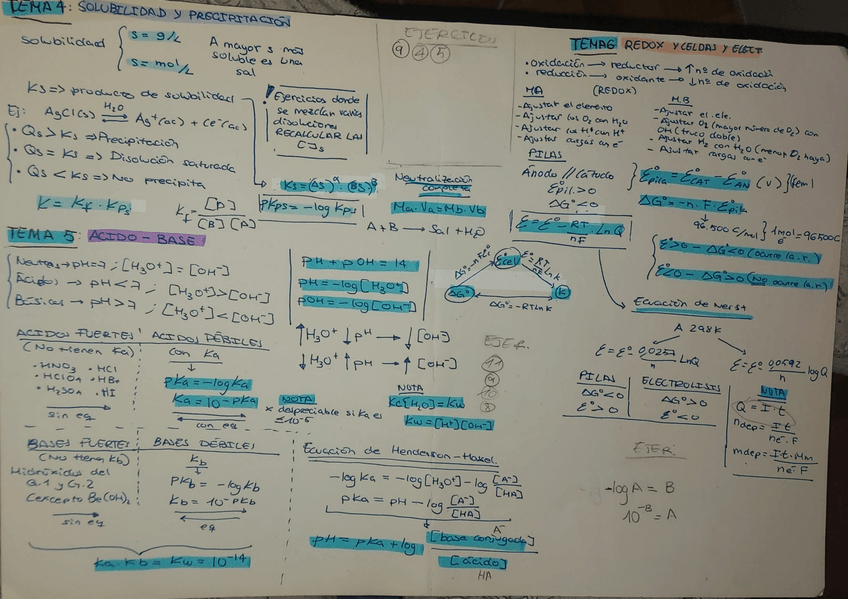 TEMA 4: SOLUBILIDAD Y PRECIPITACIÓN
solubilidad
s = g/L
s = mol/L
A mayor s más
soluble es una
sal
Ks => producto de solubilidad
Ej: AgCl(s) ⇌ Ag+(ac) + Cl-(ac)
H2O
• Qs > Ks => Precipitación
• Qs = Ks => Disolución saturada
• Qs < Ks => No precipita
! Ejercicios donde
se mezclan varias
disoluciones
RECALCULAR LAS
[ ]s
Ks = (AS)^a · (BS)^b
PKps = -log Kps
K = Kf · Kps
Kf = [D] / [B] [A]
EJERCICIOS
9 4 5
Neutralización
completa
Ma·Va = Mb·Vb
A + B → Sal + H2O
TEMA 5: ACIDO - BASE
Neutras → pH = 7 ; [H3O+] = [OH-]
Ácidos → pH < 7 ; [H3O+] > [OH-]
Básicas → pH > 7 ; [H3O+] < [OH-]
pH + pOH = 14
pH = -log [H3O+]
pOH = -log [OH-]
↑ H3O+ ↓ pH → ↓ [OH-]
↓ H3O+ ↑ pH → ↑ [OH-]
ACIDOS FUERTES
(No tienen Ka)
• HNO3 • HCl
• HClO4 • HBr
• H2SO4 • HI
sin eq
ACIDOS DÉBILES
con Ka
PKa = -log Ka
Ka = 10^-PKa
con eq
NOTA
x despreciable si Ka es
≤ 10^-5
NOTA
Kc[H2O] = Kw
Kw = [H+][OH-]
EJER.
11
9
10
8
BASES FUERTES
(No tienen Kb)
Hidróxidos del
G.1 y G.2
(excepto Be(OH)2
sin eq
BASES DÉBILES
Kb
PKb = -log Kb
Kb = 10^-PKb
eq
Ka · Kb = Kw = 10^-14
Ecuación de Henderson-Hassel.
-log Ka = -log [H3O+] - log [A-] / [HA]
pKa = pH - log [A-] / [HA]
A-
pH = pKa + log [base conjugada] / [ácido]
HA
TEMA 6 REDOX Y CELDAS Y ELECT
• oxidación → reductor → ↑ nº de oxidación
• reducción → oxidante → ↓ nº de oxidación
(REDOX)
MA
- Ajustar el elemento
- Ajustar los O2 con H2O
- Ajustar los H+ con H+
- Ajustar cargas con e-
M.B
- Ajustar el ele.
- Ajustar O2 (mayor número de O2) con
OH (truco doble)
- Ajustar H2 con H2O (menor O2 haya)
- Ajustar cargas con e-
PILAS
Ánodo // Cátodo
Eºpil. > 0
ΔGº < 0
E = Eº - RT / nF · Ln Q
Eºpila = EºCAT - EºAN (V) } fem
ΔGº = -n · F · Eºpila
96.500 C/mol } 1 mol e- = 96500C
Eº>0 - ΔGº<0 (ocurre a.r.)
Eº<0 - ΔGº>0 (No ocurre a.r.)
ΔGº = -nFEº
Eºcel
Eº = RT / nF Ln k
ΔGº
K
ΔGº = -RT Ln k
Ecuación de Nerst
A 298K
E = Eº - 0,0257 / n Ln Q
E = Eº - 0,0592 / n log Q
PILAS
ΔGº < 0
Eº > 0
ELECTROLISIS
ΔGº > 0
Eº < 0
NOTA
Q = I · t
ndep = I·t / ne-·F
mdep = I·t·Mm / ne-·F
EJER.
-log A = B
10^-B = A